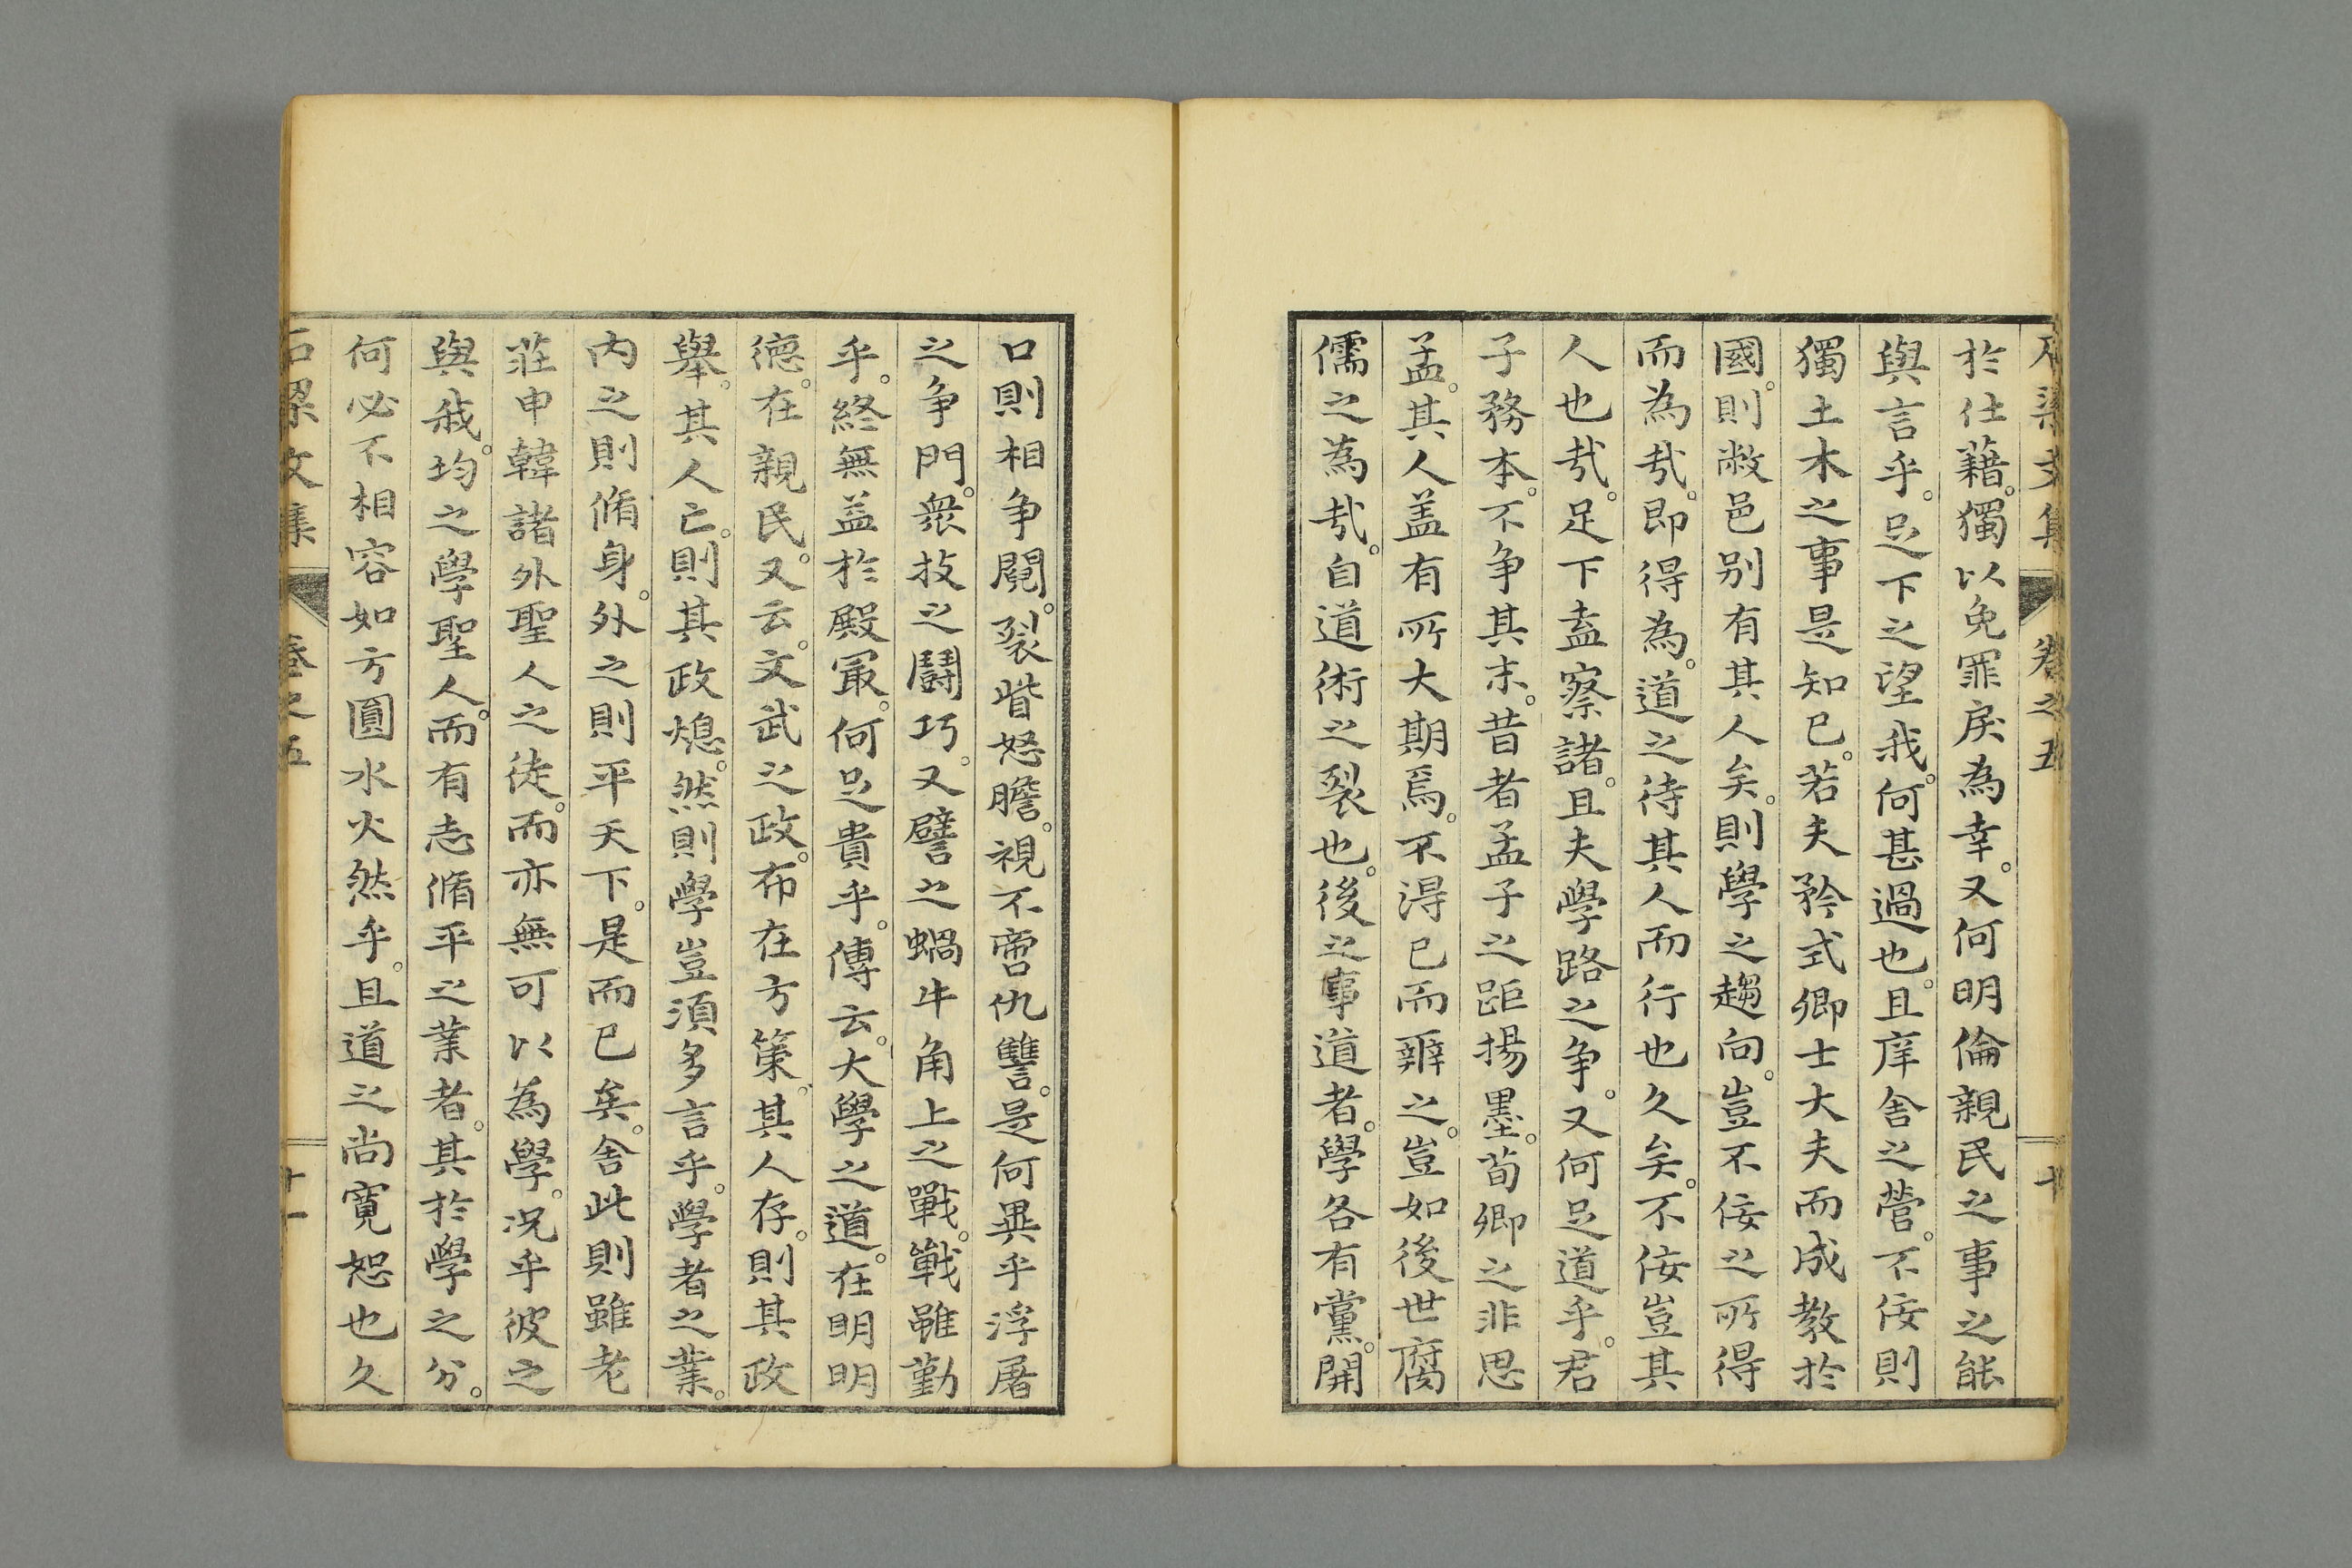 石梁文集 卷之五 十
於仕藉。獨以免罪戾為幸。又何明倫親民之事之能
與言乎。足下之望我。何甚過也。且庠舍之營。不佞則
獨土木之事是知已。若夫矜式卿士大夫而成教於
國。則敝邑别有其人矣。則學之趨向。豈不佞之所得
而為哉。即得為。道之待其人而行也久矣。不佞豈其
人也哉。足下盍察諸。且夫學路之争。又何足道乎。君
子務本。不争其末。昔者孟子之距揚墨。荀卿之非思
孟。其人盖有所大期焉。不得已而辨之。豈如後世腐
儒之為哉。自道術之裂也。後之事道者。學各有黨。開
口則相争鬩。裂眥怒瞻。視不啻仇讐。是何異乎浮屠
之争門。衆技之鬪巧。又譬之蝸牛角上之戰。戰雖勤
乎。終無益於殿冣。何足貴乎。傳云。大學之道。在明明
德。在親民。又云。文武之政。布在方策。其人存。則其政
舉。其人亡。則其政熄。然則學豈須多言乎。學者之業。
内之則脩身。外之則平天下。是而已矣。舍此則雖老
莊申韓諸外聖人之徒。而亦無可以為學。况乎彼之
與我。均之學聖人。而有志脩平之業者。其於學之分。
何必不相容如方圓水火然乎。且道之尚寬恕也久
石梁文集 卷之五 十一